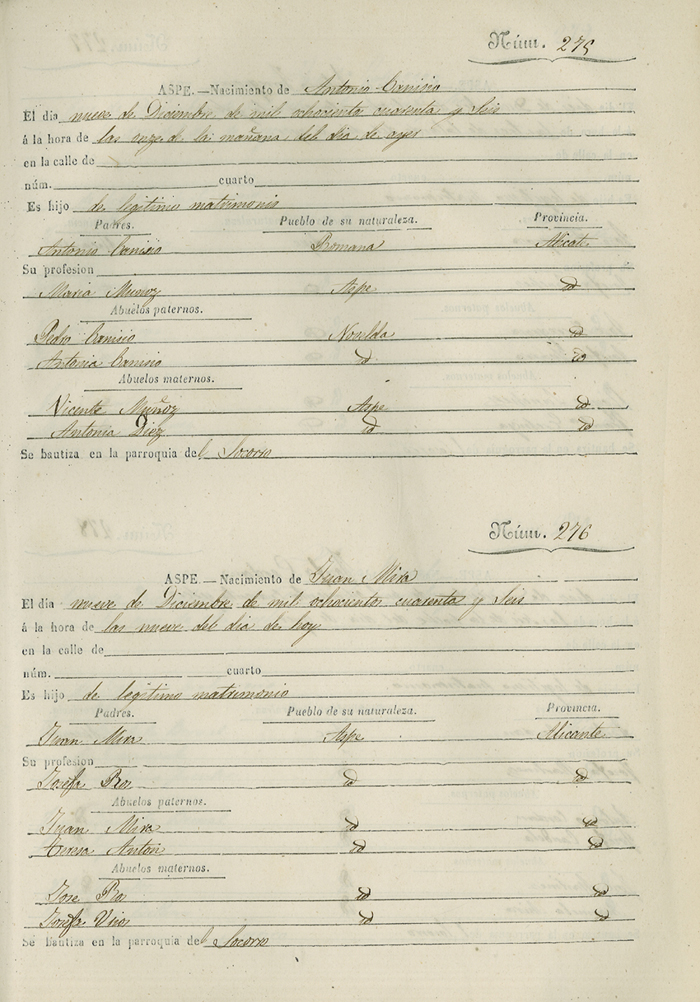 Núm. 275
ASPE.—Nacimiento de Antonio Canisio
El dia nueve de Diciembre de mil ochocientos cuarenta y Seis
á la hora de las onze de la mañana del dia de ayer
en la calle de
núm. cuarto
Es hijo de legitimo matrimonio
Padres. Pueblo de su naturaleza. Provincia.
Antonio Canisio Romana Alicate
Su profesion
Maria Muñoz Aspe id
Abuelos paternos.
Pedro Canisio Novelda id
Antonia Canisio id id
Abuelos maternos.
Vicente Muñoz Aspe id
Antonia Diez id id
Se bautiza en la parroquia del Socorro
Núm. 276
ASPE.—Nacimiento de Juan Mira
El dia nueve de Diciembre de mil ochocientos cuarenta y Seis
á la hora de las nueve del dia de hoy
en la calle de
núm. cuarto
Es hijo de legitimo matrimonio
Padres. Pueblo de su naturaleza. Provincia.
Juan Mira Aspe Alicante
Su profesion
Josefa id id
Abuelos paternos.
Juan Mira id id
Teresa Anton id id
Abuelos maternos.
Jose id id
Josefa id id
Se bautiza en la parroquia del Socorro